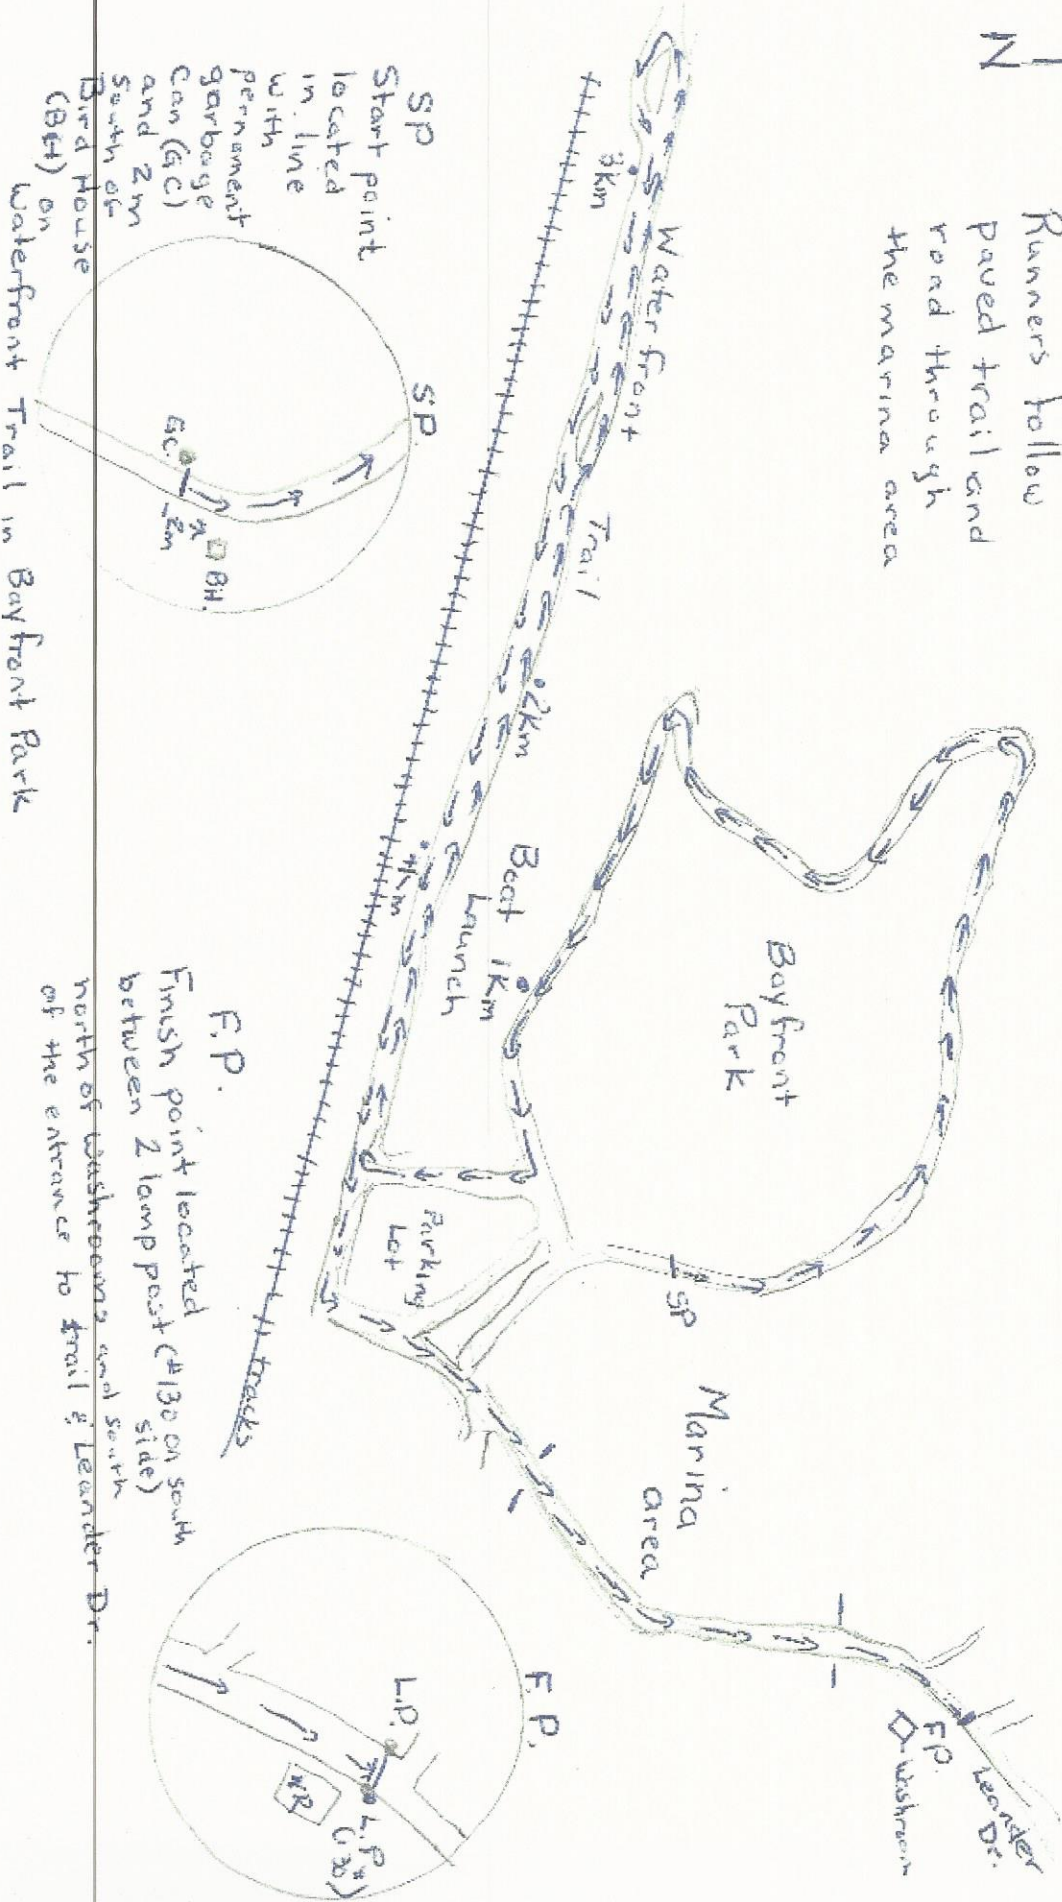 N
Runners follow
paved trail and
road through
the marina area
Waterfront
Trail
3km
2km
Boat
Launch
1km
4km
Bayfront
Park
Parking
Lot
SP
Marina
area
tracks
Leander
Dr.
F.P.
Washroom
SP
Start point
located
in line
with
pernament
garbage
can (GC)
and 2m
south of
Bird House
(BH) on
Waterfront Trail in Bayfront Park
SP.
GC.
2m
BH.
F.P.
Finish point located
between 2 lamp post (#130 on south
side)
north of washrooms and south
of the entrance to trail & Leander Dr.
F.P.
L.P.
L.P.
(#130)
WR